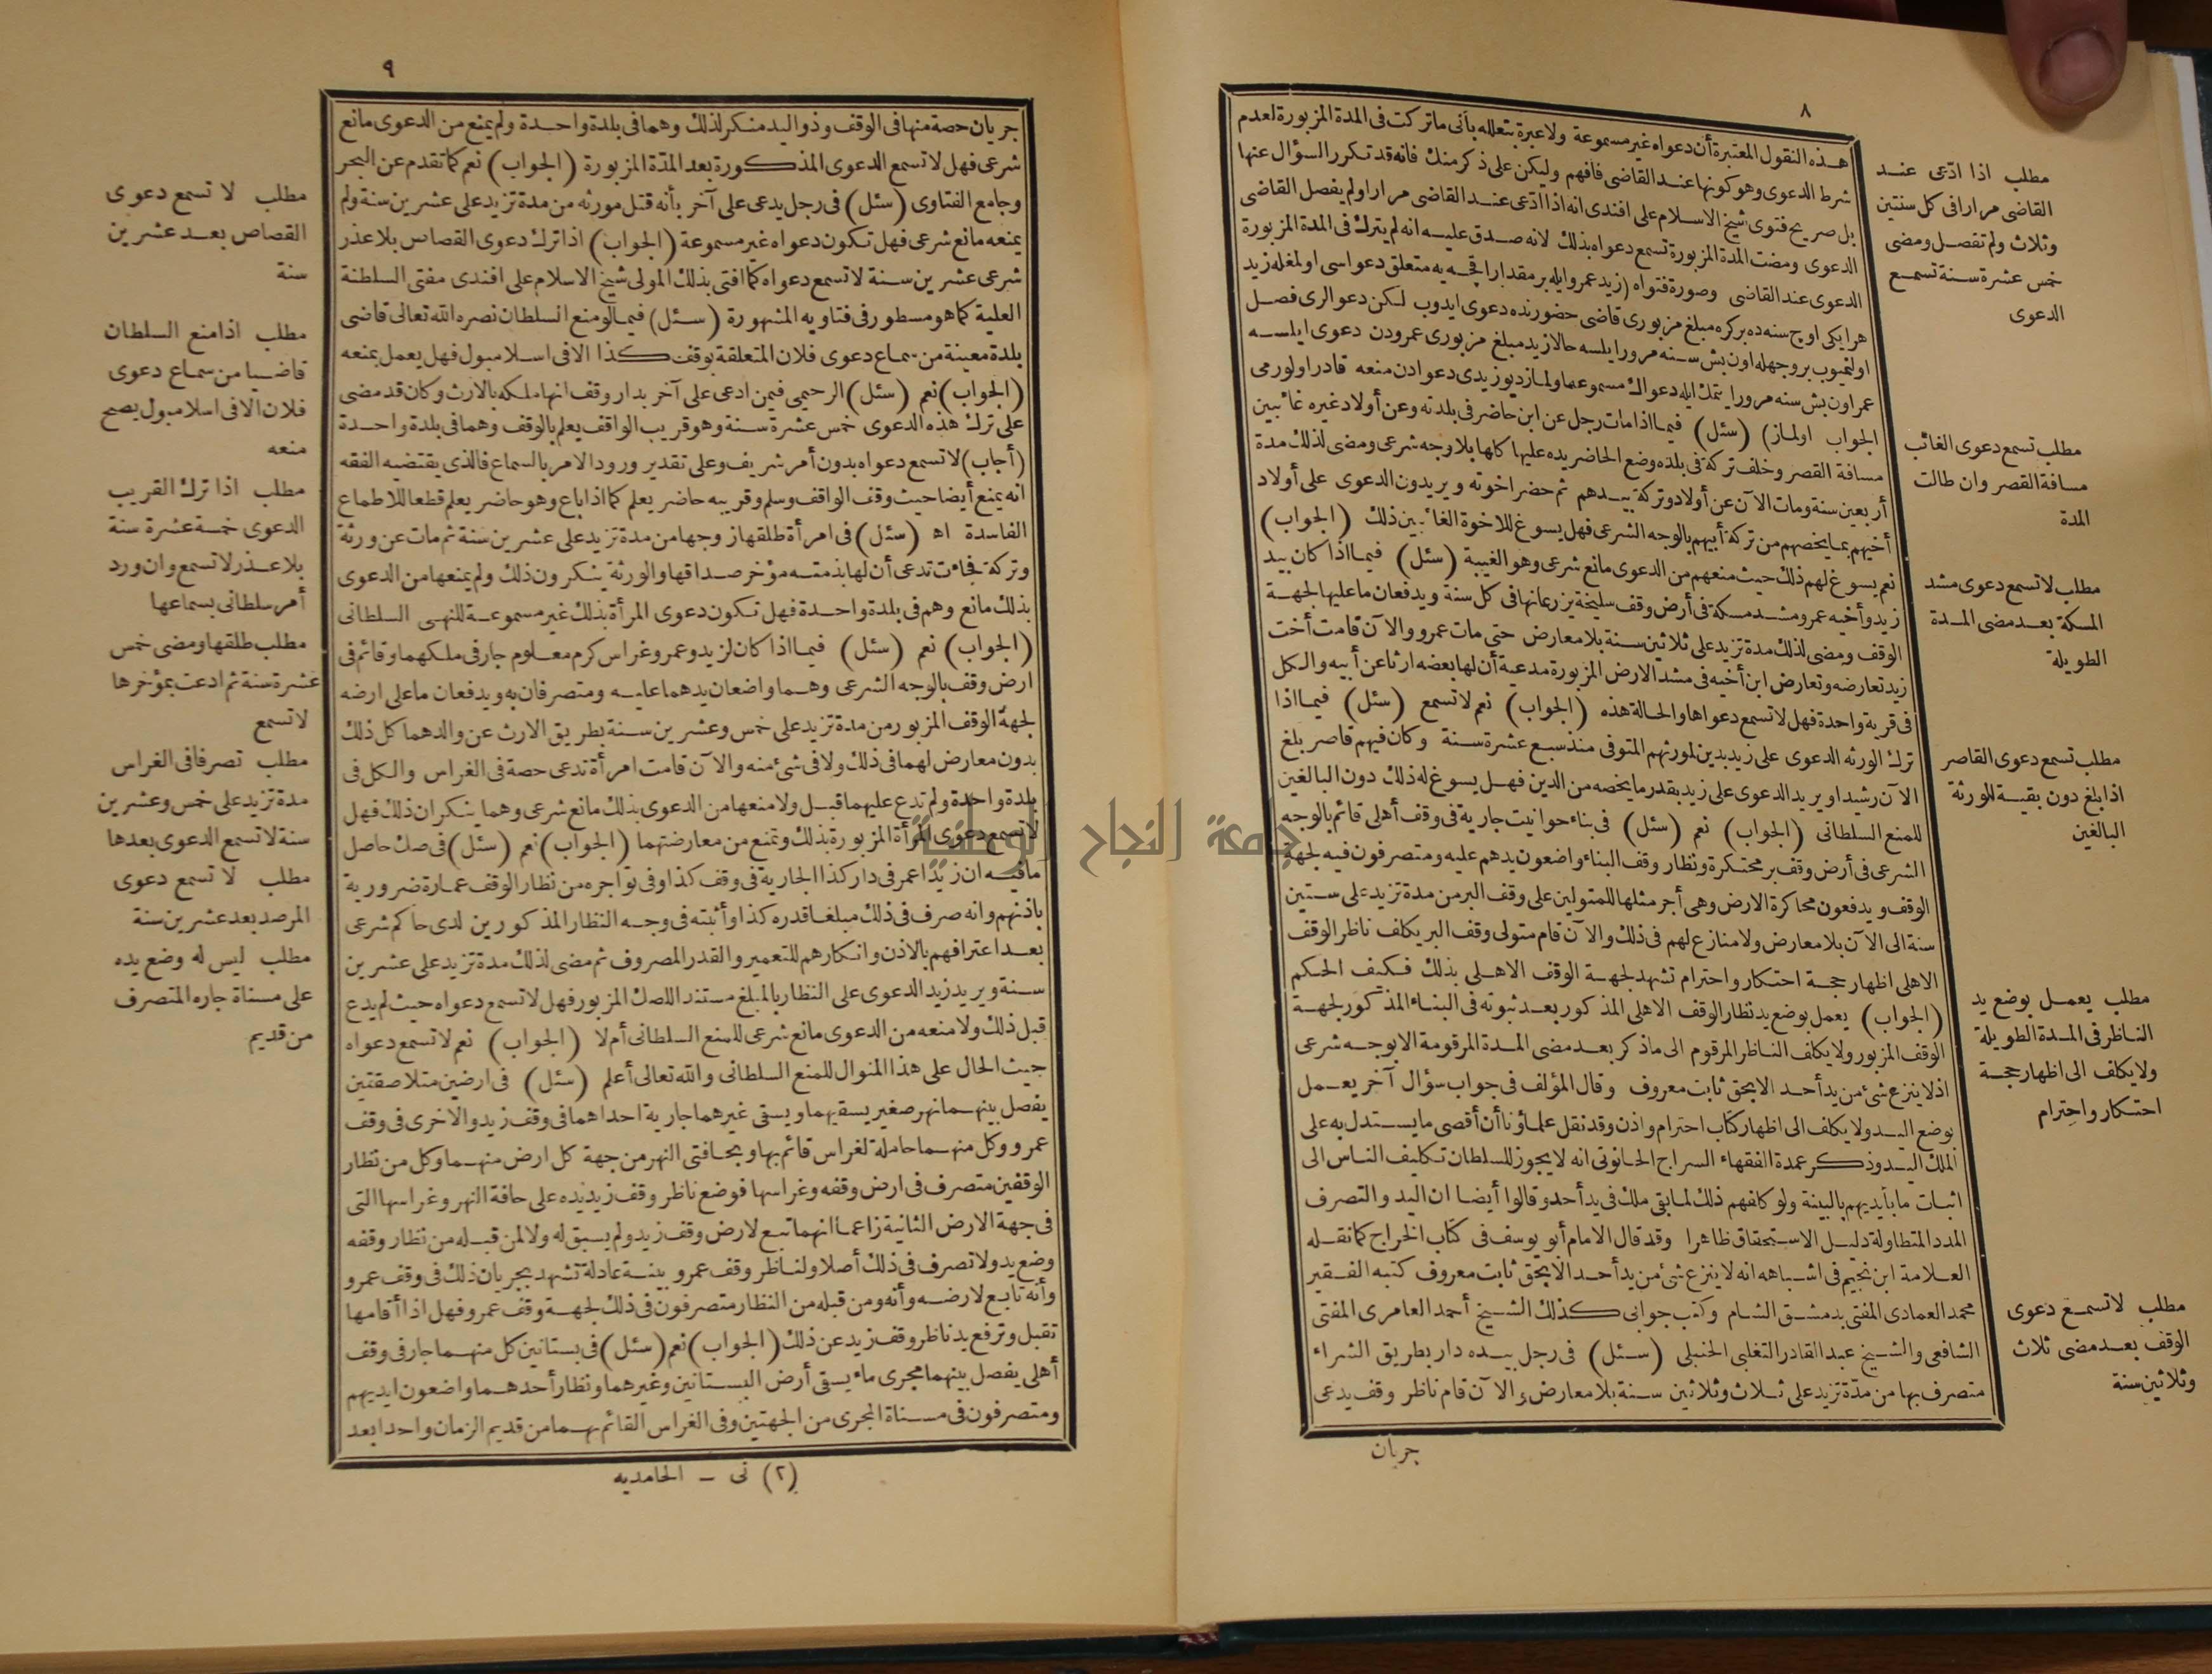 ٨
هذه النقول المعتبرة أن دعواه غير مسموعة ولا عبرة بتعلله بأنى ما تركت فى المدة المزبورة لعدم
شرط الدعوى وهو كونها عند القاضى فافهم وليكن على ذكر منك فانه قد تكرر السؤال عنها
بل صريح فتوى شيخ الاسلام على افندى انه اذا ادّعى عند القاضى مرارا ولم يفصل القاضى
الدعوى ومضت المدة المزبورة تسمع دعواه بذلك لانه صدق عليه انه لم يترك فى المدة المزبورة
الدعوى عند القاضى وصورة فتواه (زيد عمرو ايله بر مقدار اقچه يه متعلق دعواسى اولمغله زيد
هر ايكى اوچ سنه ده بر كره مبلغ مزبورى قاضى حضورنده دعوى ايدوب لكن دعوالرى فصل
اولنميوب بو وجهله اون بش سنه مرور ايلسه حالا زيد مبلغ مزبورى عمرودن دعوى ايلسه
عمرو اون بش سنه مرور ايتمك ايله دعواك مسموعه اولماز ديو زيدى دعوادن منعه قادر اولورمى
الجواب اولماز) (سئل) فيما اذا مات رجل عن ابن حاضر فى بلدته وعن أولاد غيره غائبين
مسافة القصر وخلف تركة فى بلده وضع الحاضر يده عليها كلها بلا وجه شرعى ومضى لذلك مدة
أربعين سنة ومات الآن عن أولاد وتركة بيدهم ثم حضر اخوته ويريدون الدعوى على أولاد
أخيهم بما يخصهم من تركة أبيهم بالوجه الشرعى فهل يسوغ للاخوة الغائبين ذلك (الجواب)
نعم يسوغ لهم ذلك حيث منعهم من الدعوى مانع شرعى وهو الغيبة (سئل) فيما اذا كان بيد
زيد وأخيه عمرو مشد مسكة فى أرض وقف سليخة يزرعانها فى كل سنة ويدفعان ما عليها لجهة
الوقف ومضى لذلك مدة تزيد على ثلاثين سنة بلا معارض حتى مات عمرو والآن قامت أخت
زيد تعارضه وتعارض ابن أخيه فى مشد الارض المزبورة مدعية أن لها بعضه ارثا عن أبيه والكل
فى قرية واحدة فهل لا تسمع دعواها والحالة هذه (الجواب) نعم لا تسمع (سئل) فيما اذا
ترك الورثه الدعوى على زيد بدين لمورثهم المتوفى منذ سبع عشرة سنة وكان فيهم قاصر بلغ
الآن رشيدا ويريد الدعوى على زيد بقدر ما يخصه من الدين فهل يسوغ له ذلك دون البالغين
للمنع السلطانى (الجواب) نعم (سئل) فى بناء حوانيت جارية فى وقف أهلى قائم بالوجه
الشرعى فى أرض وقف بر محتكرة ونظار وقف البناء واضعون يدهم عليه ومتصرفون فيه لجهة
الوقف ويدفعون محاكرة الارض وهى أجر مثلها للمتولين على وقف البر من مدة تزيد على ستين
سنة الى الآن بلا معارض ولا منازع لهم فى ذلك والآن قام متولى وقف البر يكلف ناظر الوقف
الاهلى اظهار حجة احتكار واحترام تشهد لجهة الوقف الاهلى بذلك فكيف الحكم
(الجواب) يعمل بوضع يد نظار الوقف الاهلى المذكور بعد ثبوته فى البناء المذكور لجهة
الوقف المزبور ولا يكلف الناظر المرقوم الى ما ذكر بعد مضى المدة المرقومة الا بوجه شرعى
اذ لا ينزع شئ من يد أحد الا بحق ثابت معروف وقال المؤلف فى جواب سؤال آخر يعمل
بوضع اليد ولا يكلف الى اظهار كتاب احترام واذن وقد نقل علماؤنا أن أقصى ما يستدل به على
الملك اليد وذكر عمدة الفقهاء السراج الحانوتى انه لا يجوز للسلطان تكليف الناس الى
اثبات ما بأيديهم بالبينة ولو كلفهم ذلك لما بقى ملك فى يد أحد وقالوا أيضا ان اليد والتصرف
المدد المتطاولة دليل الاستحقاق ظاهرا وقد قال الامام أبو يوسف فى كتاب الخراج كما نقله
العلامة ابن نجيم فى اشباهه انه لا ينزع شئ من يد أحد الا بحق ثابت معروف كتبه الفقير
محمد العمادى المفتى بدمشق الشام وكتب جوابى كذلك الشيخ أحمد العامرى المفتى
الشافعى والشيخ عبد القادر التغلبى الحنبلى (سئل) فى رجل بيده دار بطريق الشراء
متصرف بها من مدّة تزيد على ثلاث وثلاثين سنة بلا معارض والآن قام ناظر وقف يدعى
جريان
مطلب اذا ادّعى عند
القاضى مرارا فى كل سنتين
وثلاث ولم تفصل ومضى
خمس عشرة سنة تسمع
الدعوى
مطلب تسمع دعوى الغائب
مسافة القصر وان طالت
المدة
مطلب لا تسمع دعوى مشد
المسكة بعد مضى المدة
الطويلة
مطلب تسمع دعوى القاصر
اذا بلغ دون بقية الورثة
البالغين
مطلب يعمل بوضع يد
الناظر فى المدة الطويلة
ولا يكلف الى اظهار حجة
احتكار واحترام
مطلب لا تسمع دعوى
الوقف بعد مضى ثلاث
وثلاثين سنة
٩
جريان حصة منها فى الوقف وذو اليد منكر لذلك وهما فى بلدة واحدة ولم يمنع من الدعوى مانع
شرعى فهل لا تسمع الدعوى المذكورة بعد المدّة المزبورة (الجواب) نعم كما تقدم عن البحر
وجامع الفتاوى (سئل) فى رجل يدعى على آخر بأنه قتل مورثه من مدة تزيد على عشرين سنة ولم
يمنعه مانع شرعى فهل تكون دعواه غير مسموعة (الجواب) اذا ترك دعوى القصاص بلا عذر
شرعى عشرين سنة لا تسمع دعواه كما افتى بذلك المولى شيخ الاسلام على افندى مفتى السلطنة
العلية كما هو مسطور فى فتاويه المشهورة (سئل) فيما لو منع السلطان نصره الله تعالى قاضى
بلدة معينة من سماع دعوى فلان المتعلقة بوقف كذا الا فى اسلامبول فهل يعمل بمنعه
(الجواب) نعم (سئل) الرحيمى فيمن ادعى على آخر بدار وقف انها ملكه بالارث وكان قد مضى
على ترك هذه الدعوى خمس عشرة سنة وهو قريب الواقف يعلم بالوقف وهما فى بلدة واحدة
(أجاب) لا تسمع دعواه بدون أمر شريف وعلى تقدير ورود الامر بالسماع فالذى يقتضيه الفقه
انه يمنع أيضا حيث وقف الواقف وسلم وقريبه حاضر يعلم كما اذا باع وهو حاضر يعلم قطعا للاطماع
الفاسدة اه (سئل) فى امرأة طلقها زوجها من مدة تزيد على عشرين سنة ثم مات عن ورثة
وتركة فجاءت تدعى أن لها بذمته مؤخر صداقها والورثة ينكرون ذلك ولم يمنعها من الدعوى
بذلك مانع وهم فى بلدة واحدة فهل تكون دعوى المرأة بذلك غير مسموعة للنهى السلطانى
(الجواب) نعم (سئل) فيما اذا كان لزيد وعمرو غراس كرم معلوم جار فى ملكهما وقائم فى
ارض وقف بالوجه الشرعى وهما واضعان يدهما عليه ومتصرفان به ويدفعان ما على ارضه
لجهة الوقف المزبور من مدة تزيد على خمس وعشرين سنة بطريق الارث عن والدهما كل ذلك
بدون معارض لهما فى ذلك ولا فى شئ منه والآن قامت امرأة تدعى حصة فى الغراس والكل فى
بلدة واحدة ولم تدع عليهما قبل ولا منعها من الدعوى بذلك مانع شرعى وهما ينكران ذلك فهل
لا تسمع دعوى المرأة المزبورة بذلك وتمنع من معارضتهما (الجواب) نعم (سئل) فى صك حاصل
ما فيه ان زيدا عمر فى دار كذا الجارية فى وقف كذا وفى تواجره من نظار الوقف عمارة ضرورية
باذنهم وانه صرف فى ذلك مبلغا قدره كذا وأثبته فى وجه النظار المذكورين لدى حاكم شرعى
بعد اعترافهم بالاذن وانكارهم للتعمير والقدر المصروف ثم مضى لذلك مدة تزيد على عشرين
سنة ويريد زيد الدعوى على النظار بالمبلغ مستندا للصك المزبور فهل لا تسمع دعواه حيث لم يدع
قبل ذلك ولا منعه من الدعوى مانع شرعى للمنع السلطانى أم لا (الجواب) نعم لا تسمع دعواه
حيث الحال على هذا المنوال للمنع السلطانى والله تعالى أعلم (سئل) فى ارضين متلاصقتين
يفصل بينهما نهر صغير يسقيهما ويسقى غيرهما جارية احداهما فى وقف زيد والاخرى فى وقف
عمرو وكل منهما حاملة لغراس قائم بها وبحافتى النهر من جهة كل ارض منهما وكل من نظار
الوقفين متصرف فى ارض وقفه وغراسها فوضع ناظر وقف زيد يده على حافة النهر وغراسها التى
فى جهة الارض الثانية زاعما انهما تبع لارض وقف زيد ولم يسبق له ولا لمن قبله من نظار وقفه
وضع يد ولا تصرف فى ذلك أصلا ولناظر وقف عمرو بينة عادلة تشهد بجريان ذلك فى وقف عمرو
وأنه تابع لارضه وأنه ومن قبله من النظار متصرفون فى ذلك لجهة وقف عمرو فهل اذا أقامها
تقبل وترفع يد ناظر وقف زيد عن ذلك (الجواب) نعم (سئل) فى بستانين كل منهما جار فى وقف
أهلى يفصل بينهما مجرى ماء يسقى أرض البستانين وغيرهما ونظار أحدهما واضعون ايديهم
ومتصرفون فى مسناة المجرى من الجهتين وفى الغراس القائم بهما من قديم الزمان واحدا بعد
(٢) نى - الحامديه
مطلب لا تسمع دعوى
القصاص بعد عشرين
سنة
مطلب اذا منع السلطان
قاضيا من سماع دعوى
فلان الا فى اسلامبول يصح
منعه
مطلب اذا ترك القريب
الدعوى خمسة عشرة سنة
بلا عذر لا تسمع وان ورد
أمر سلطانى بسماعها
مطلب طلقها ومضى خمس
عشرة سنة ثم ادعت بمؤخرها
لا تسمع
مطلب تصرفا فى الغراس
مدة تزيد على خمس وعشرين
سنة لا تسمع الدعوى بعدها
مطلب لا تسمع دعوى
المرصد بعد عشرين سنة
مطلب ليس له وضع يده
على مسناة جاره المتصرف
من قديم
جامعة النجاح الوطنية